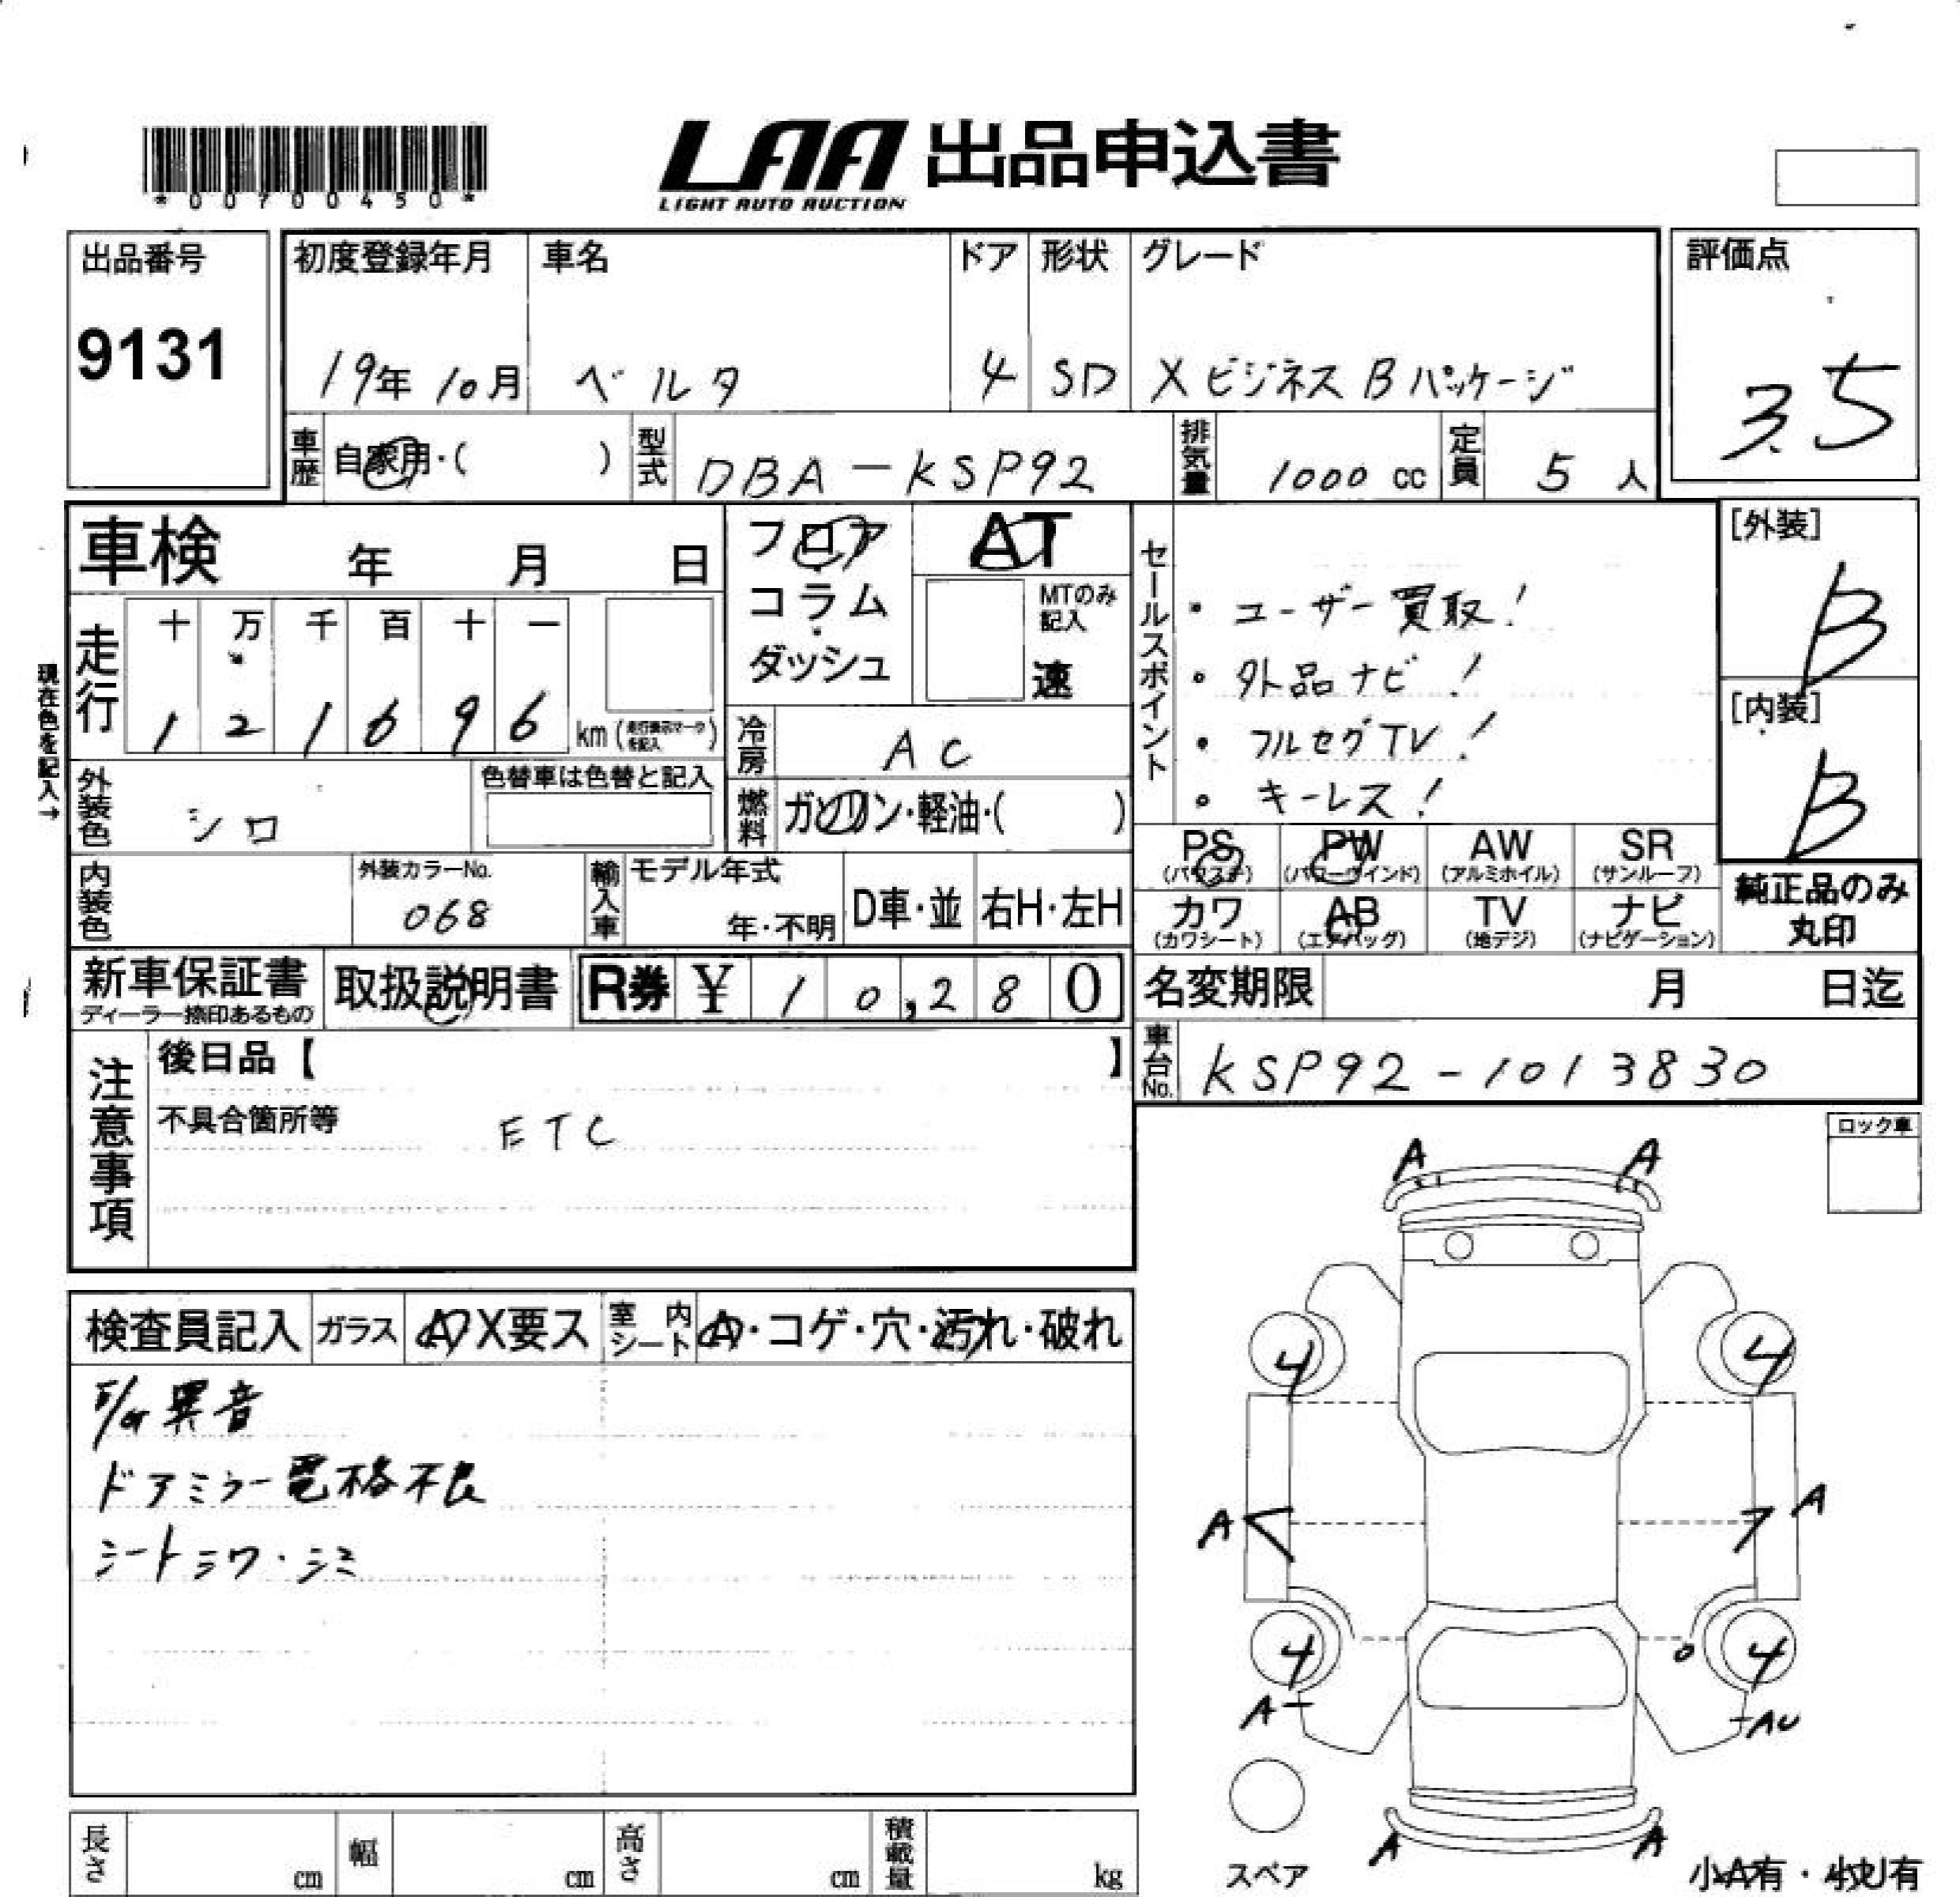 *00700450*
LAA 出品申込書
LIGHT AUTO AUCTION
出品番号
9131
初度登録年月
19年 10月
車名
ベルタ
ドア
4
形状
SD
グレード
X ビジネス B パッケージ
評価点
3.5
車歴 自家用・( )
型式 DBA-KSP92
排気量 1000 cc
定員 5 人
車検 年 月 日
フロア・
コラム・
ダッシュ
AT
MTのみ記入
速
セールスポイント
・ユーザー買取!
・外品ナビ!
・フルセグTV!
・キーレス!
[外装]
B
[内装]
B
現在色を記入→
走行
十 万 千 百 十 一
1 2 1 6 9 6 km (走行表示マークを記入)
冷房 AC
燃料 ガソリン・軽油・( )
外装色 シロ
色替車は色替と記入
内装色
外装カラーNo.
068
輸入車
モデル年式
年・不明
D車・並
右H・左H
PS (パワステ)
PW (パワーウインド)
AW (アルミホイル)
SR (サンルーフ)
カワ (カワシート)
AB (エアバッグ)
TV (地デジ)
ナビ (ナビゲーション)
純正品のみ
丸印
新車保証書
ディーラー捺印あるもの
取扱説明書
R券 ¥ 10,280
名変期限 月 日迄
車台No. KSP92-1013830
注意事項
後日品【 】
不具合箇所等
ETC
ロック車
検査員記入
ガラス A X要ス
室内シート A・コゲ・穴・汚れ・破れ
E/G異音
ドアミラー電格不良
シートシワ・シミ
A A
4 4
A A
4 4
A AU
A A
スペア
小A有・小U有
長さ cm
幅 cm
高さ cm
積載量 kg